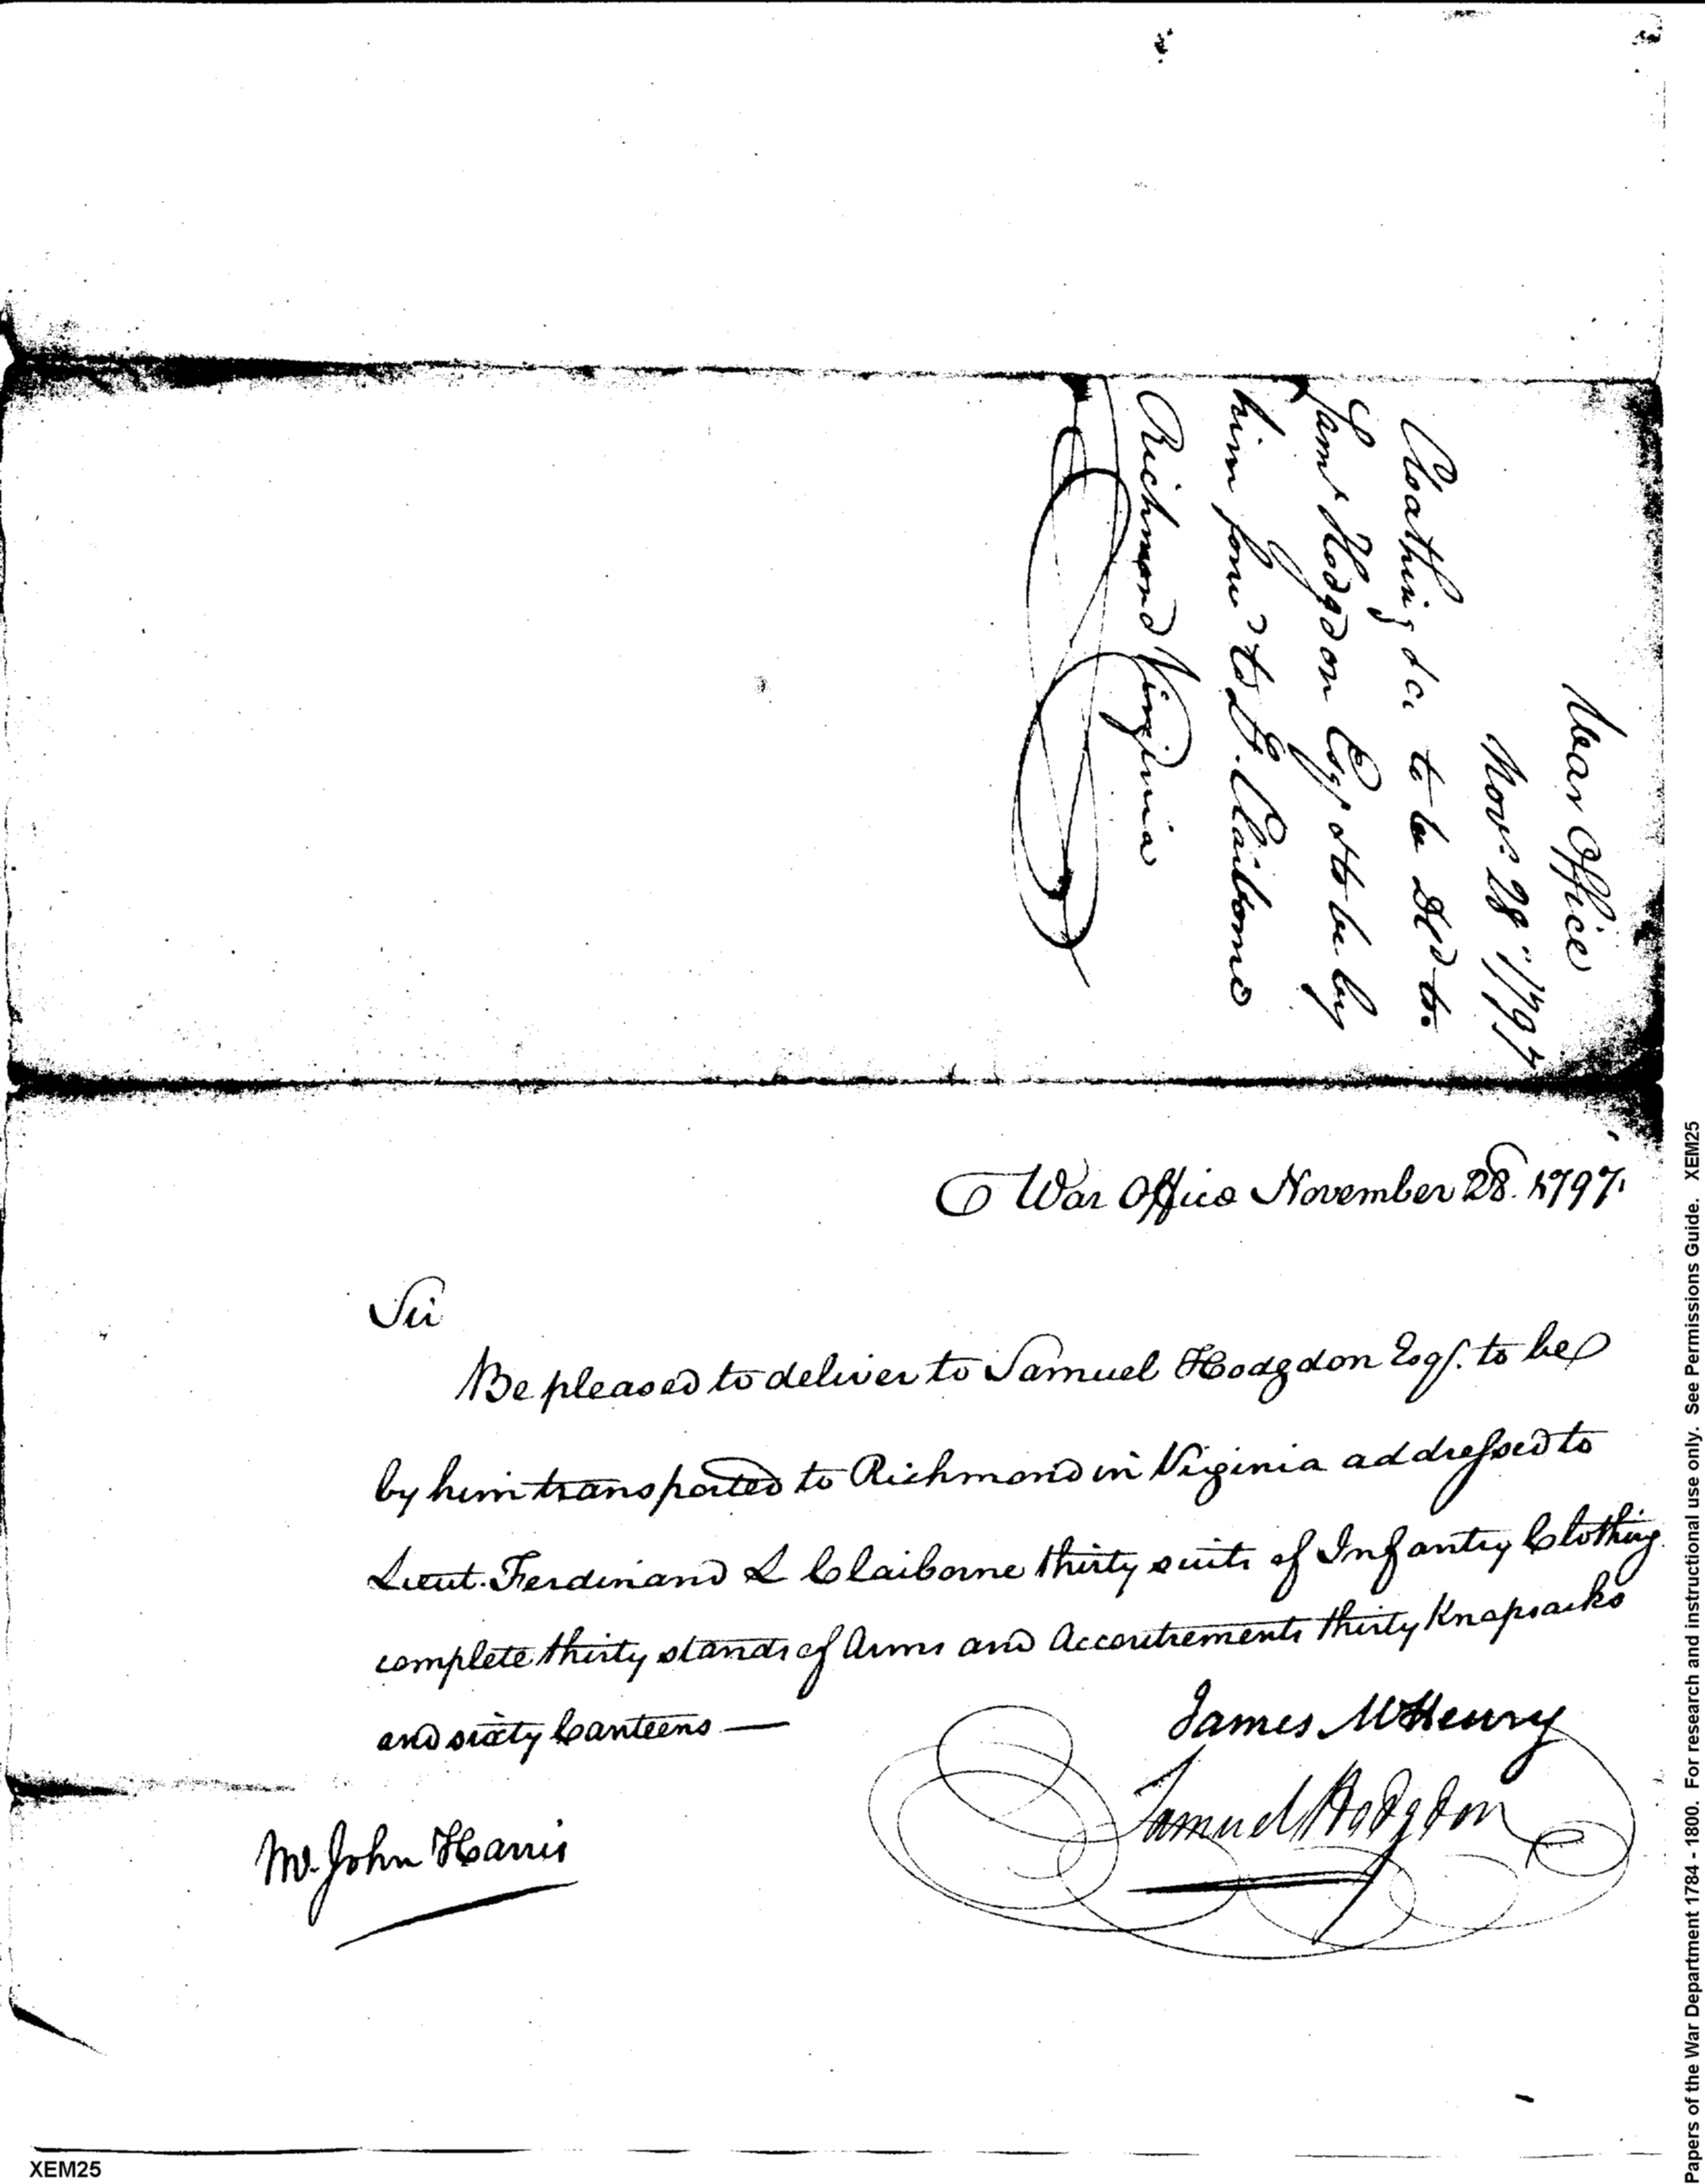 War Office
Nov.r 28th 1797
Cloathing &c. to be Del.d to
Sam.l Hodgdon Esq.r to be by
him forw.d to F. Claiborne
Richmond Virginia
War Office November 28. 1797.
Sir
Be pleased to deliver to Samuel Hodgdon Esqr. to be
by him transported to Richmond in Virginia addressed to
Lieut. Ferdinand L Claiborne thirty suits of Infantry Clothing
complete thirty stands of Arms and Accoutrements thirty Knapsacks
and sixty Canteens —
James McHenry
Samuel Hodgdon
Mr. John Harris
XEM25
Papers of the War Department 1784 - 1800. For research and instructional use only. See Permissions Guide. XEM25